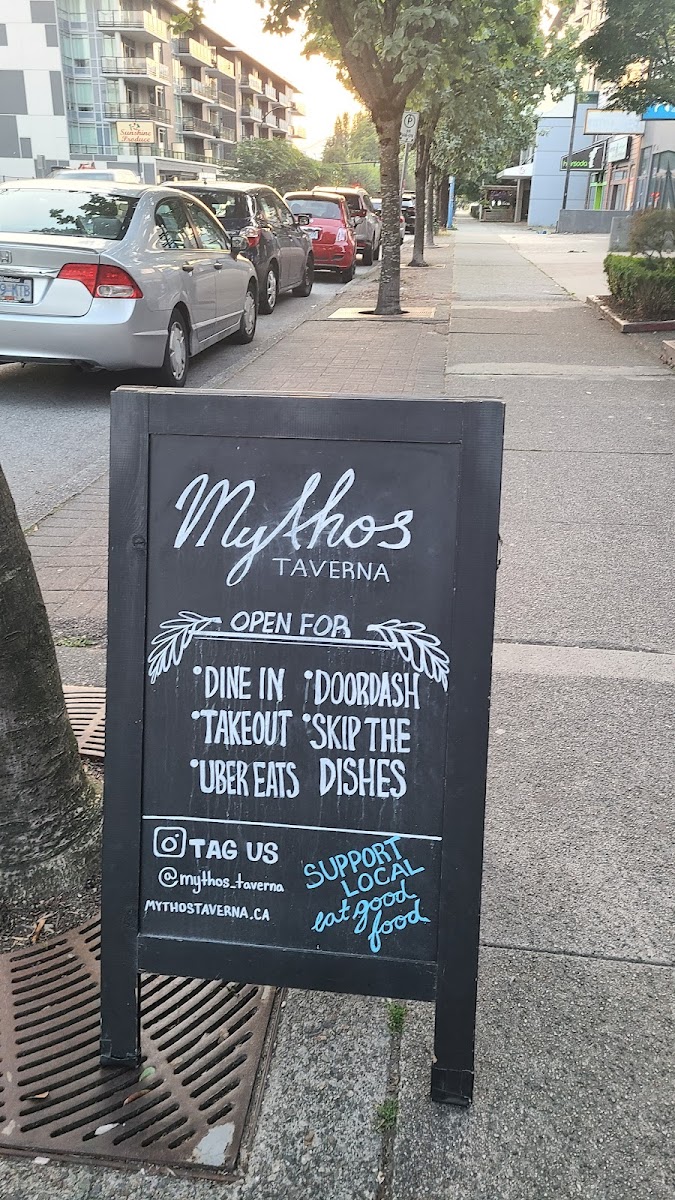 Sunshine
Produce
P
Mythos
TAVERNA
OPEN FOR
•DINE IN •DOORDASH
•TAKEOUT •SKIP THE
•UBER EATS DISHES
TAG US
@mythos_taverna
MYTHOSTAVERNA.CA
SUPPORT
LOCAL
eat good
food